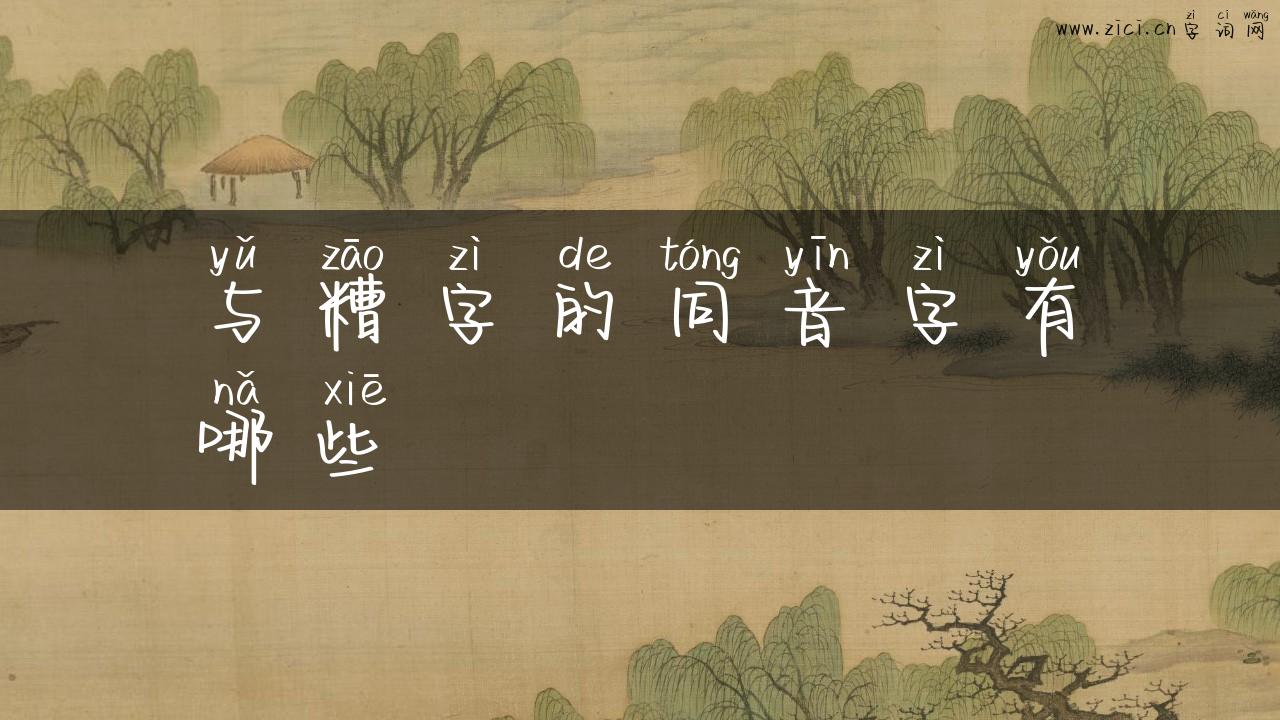 zì cí wǎng
www.zici.cn 字 词 网
yǔ zāo zì de tóng yīn zì yǒu
与 糟 字 的 同 音 字 有
nǎ xiē
哪 些